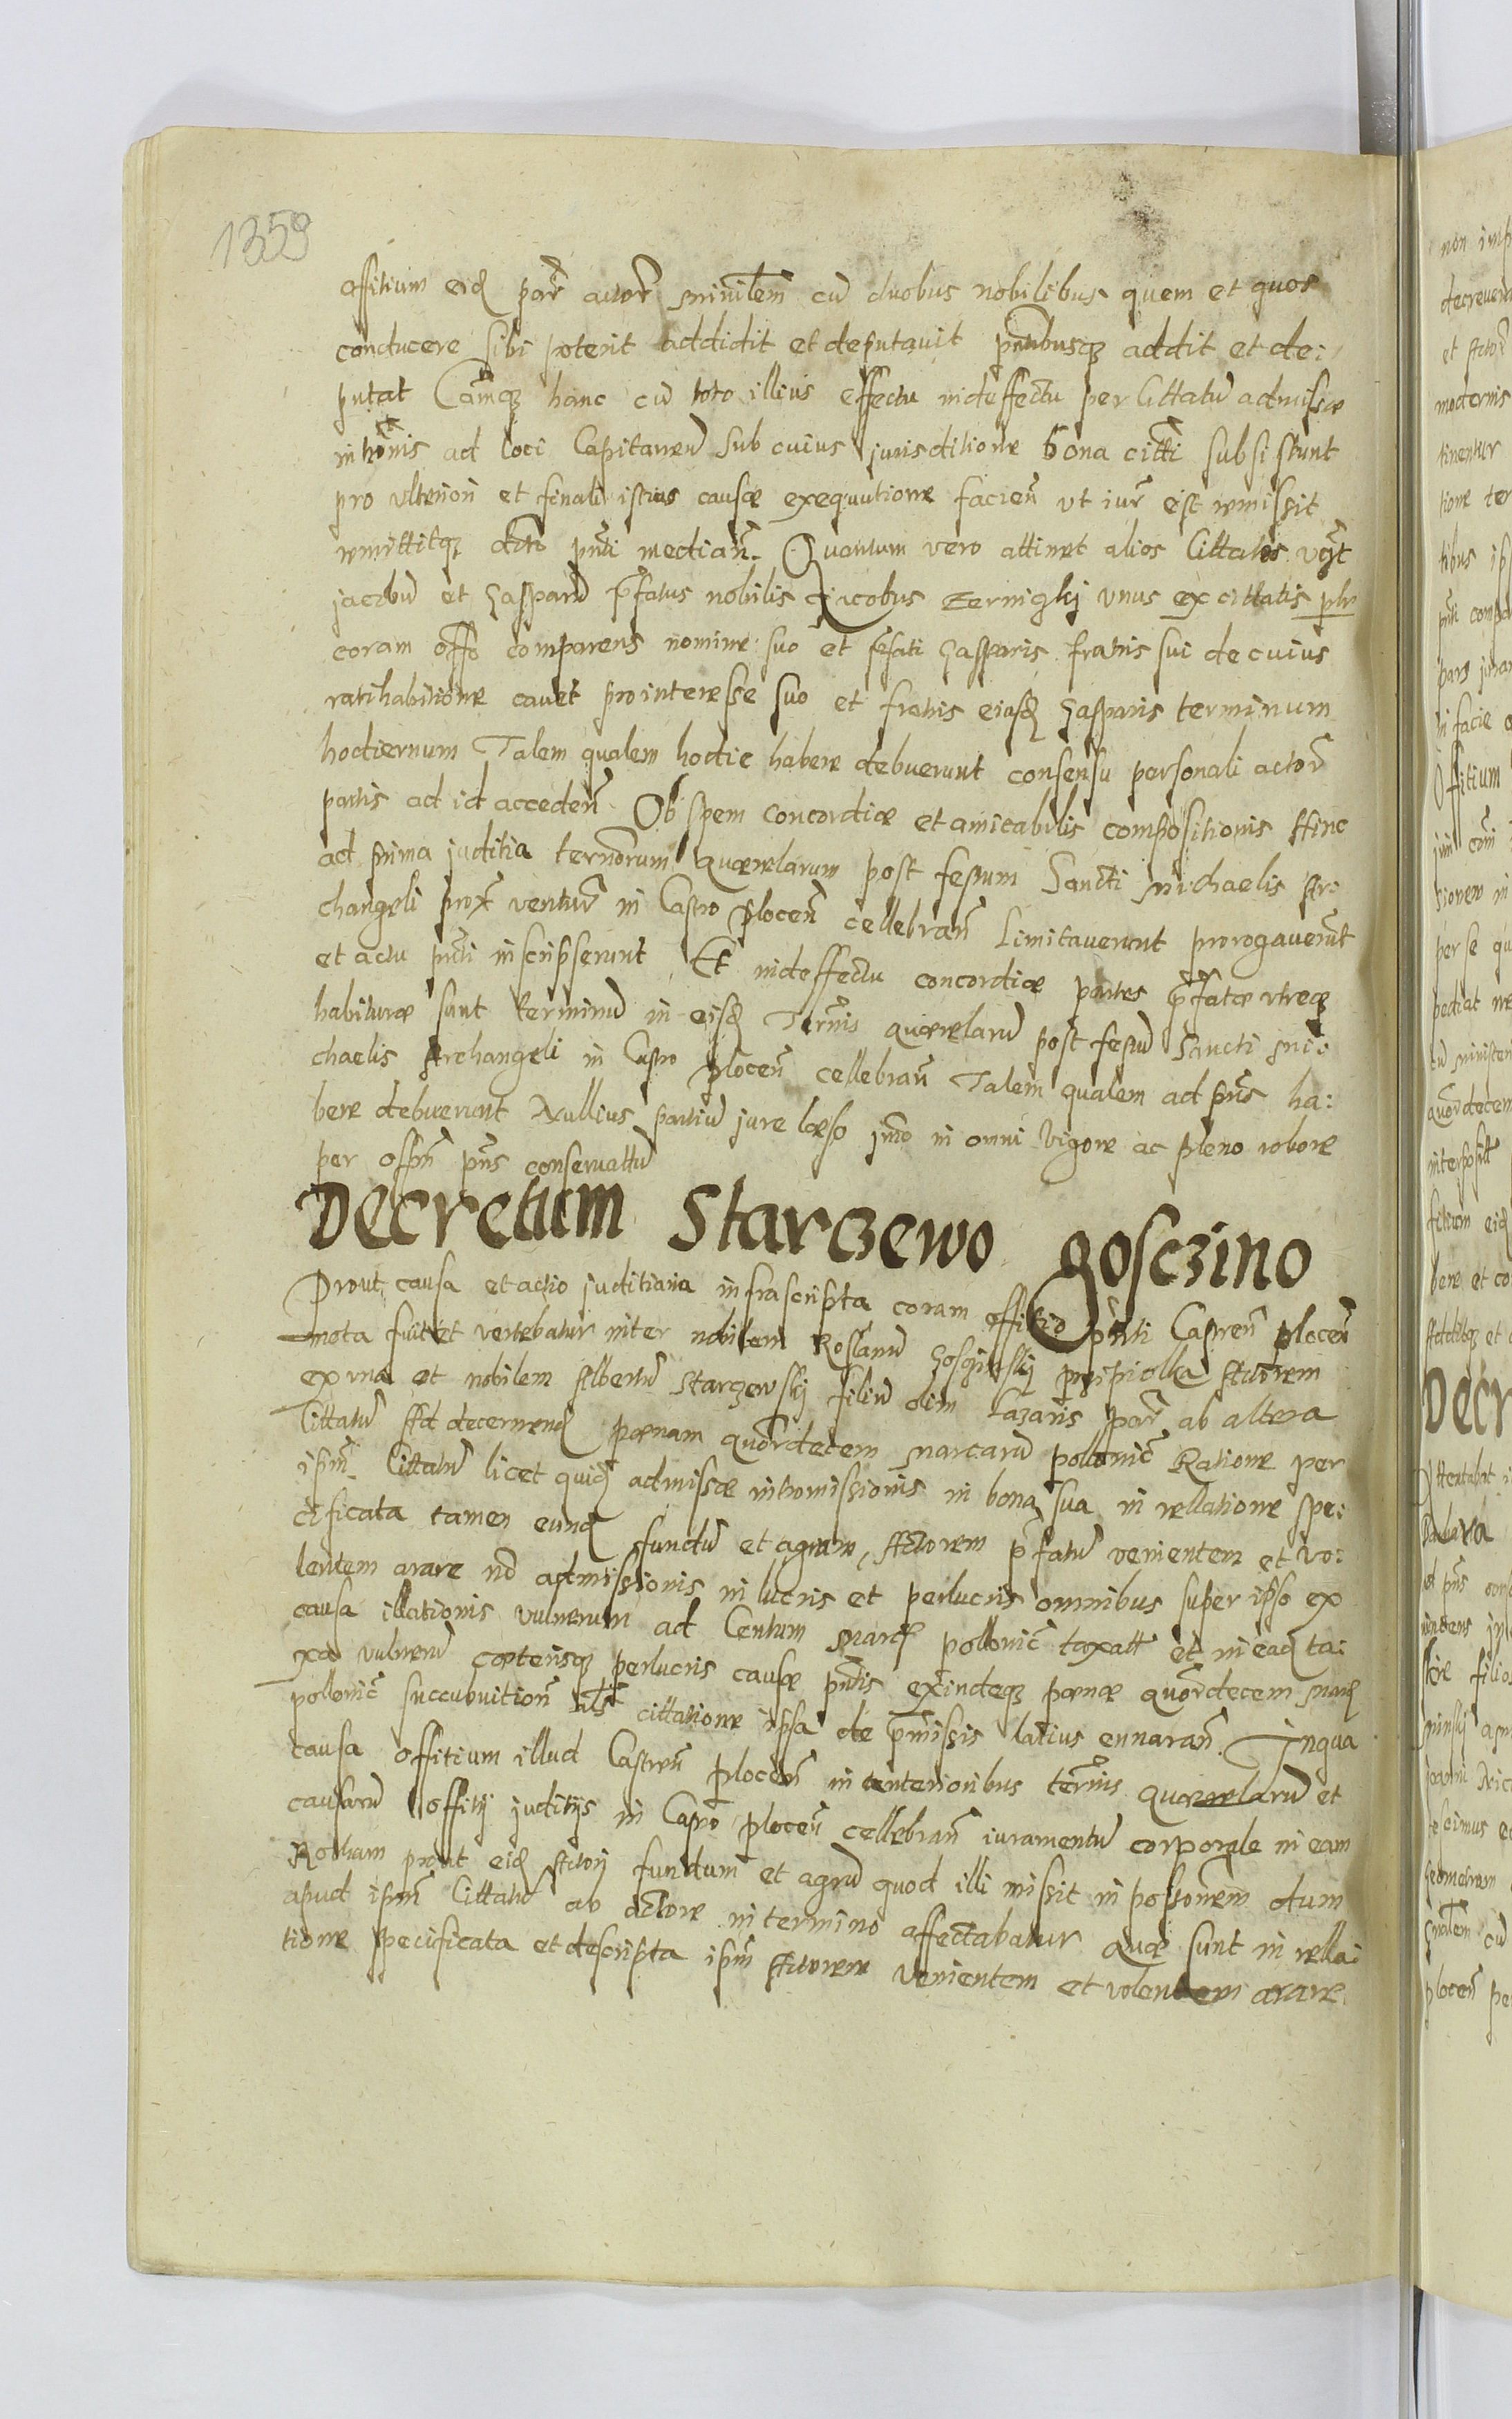 1359
offitium eid parr actor minilem cu duobus nobilibus quem et quos
conducere sibi poterit addidit et deputavit pntibusq addit et de:
putat Camq hanc cu toto illius effectu indeffectu per Cittatu admissae
ad loci Capitaneu sub cuius jurisditione bona citti subsistunt
pro ulteriori et finali istius causae exequutione facien ut iur est remissit
remittitq dcto pnti median. Quantum vero attinet alios Cittatos vgt
jacobu et Gasparu pfatus nobilis Jacobus unus ex cittatis
coram offo comparens nomine suo et pfati Gasparis fratris sui de cuius
ratihabitione cavet pro interesse suo et fratris eiusd Gasparis terminum
hodiernum Talem qualem hodie habere debuerunt consensu personali actor
partis ad id acceden Ob spem concordiae et amicabilis compositionis Hinc
ad prima juditia terminorum quaerelarum post festum Sancti Michaelis Ar:
changeli prox ventur in Castro plocen cellebran Limitaverunt prorogaverunt
et actu pnti inscripserunt Et indeffectu concordiae partes pfatae utraeq
habiturae sunt terminu in eisd Termis quaerelaru post festu Sancti Mi:
chaelis Archangeli in Castro plocen cellebran Talem qualem ad pns ha:
bere debuerunt Nullius partiu jure laeso jmo in omni vigore ac pleno robore
per offm pns conservattu
Decretum Starczewo Gosczino
Prout causa et actio juditiaria infrascripta coram offitio pnti Castren plocen
mota fuit et vertebatur inter nobilem Gosczinskj przipiolka Actorem
ex una et nobilem Albertu Starczewskj filiu olim Lazaris parr ab altera
Cittatu Ad decernend paenam quordecem marcaru pollonic Ratione per
ipm Cittatu licet quid admissae intromissionis in bona sua in rellatione spe:
cificata tamen eund fundu et agrum, Actorem pfatu venientem et vo:
lentem arare no admissionis in lucris et perlucris omnibus super ipso ex
causa illationis vulnerum ad Centum Marc pollonic taxatt et in ead ta:
xa vulneru caeterisq perlucris causae pntis exindeq paenae quordecem Marc
pollonic succubuition cittatione ipsa de pmissis latius ennaran. Inqua
causa offitium illud Castren plocen in anterioribus termis quaerelaru et
causaru offitij juditijs in Castro plocen cellebran iuramentu corporale in eam
Rottam prout eid Actorj fundum et agru quod illi missit in possionem dum
apud ipm Cittatu ab actore in termino affectabatur quae sunt in rella:
tione specificata et descripta ipm Actorem venientem et volentem arare